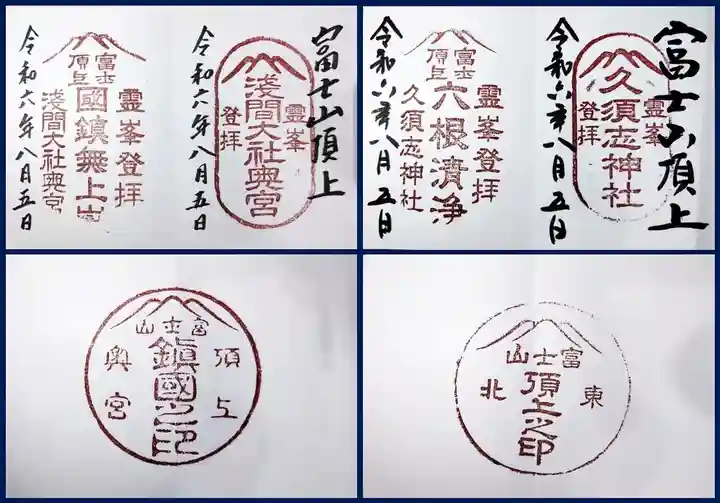 富士山頂上
霊峯
淺間大社奥宮
登拝
令和六年八月五日
霊峯登拝
富士
頂上
國鎮無上嶽
淺間大社奥宮
令和六年八月五日
富士山頂上
霊峯
久須志神社
登拝
令和六年八月五日
霊峯登拝
富士
頂上
六根清浄
久須志神社
令和六年八月五日
富士山
頂上
鎮國之印
奥宮
富士山
東
頂上之印
北